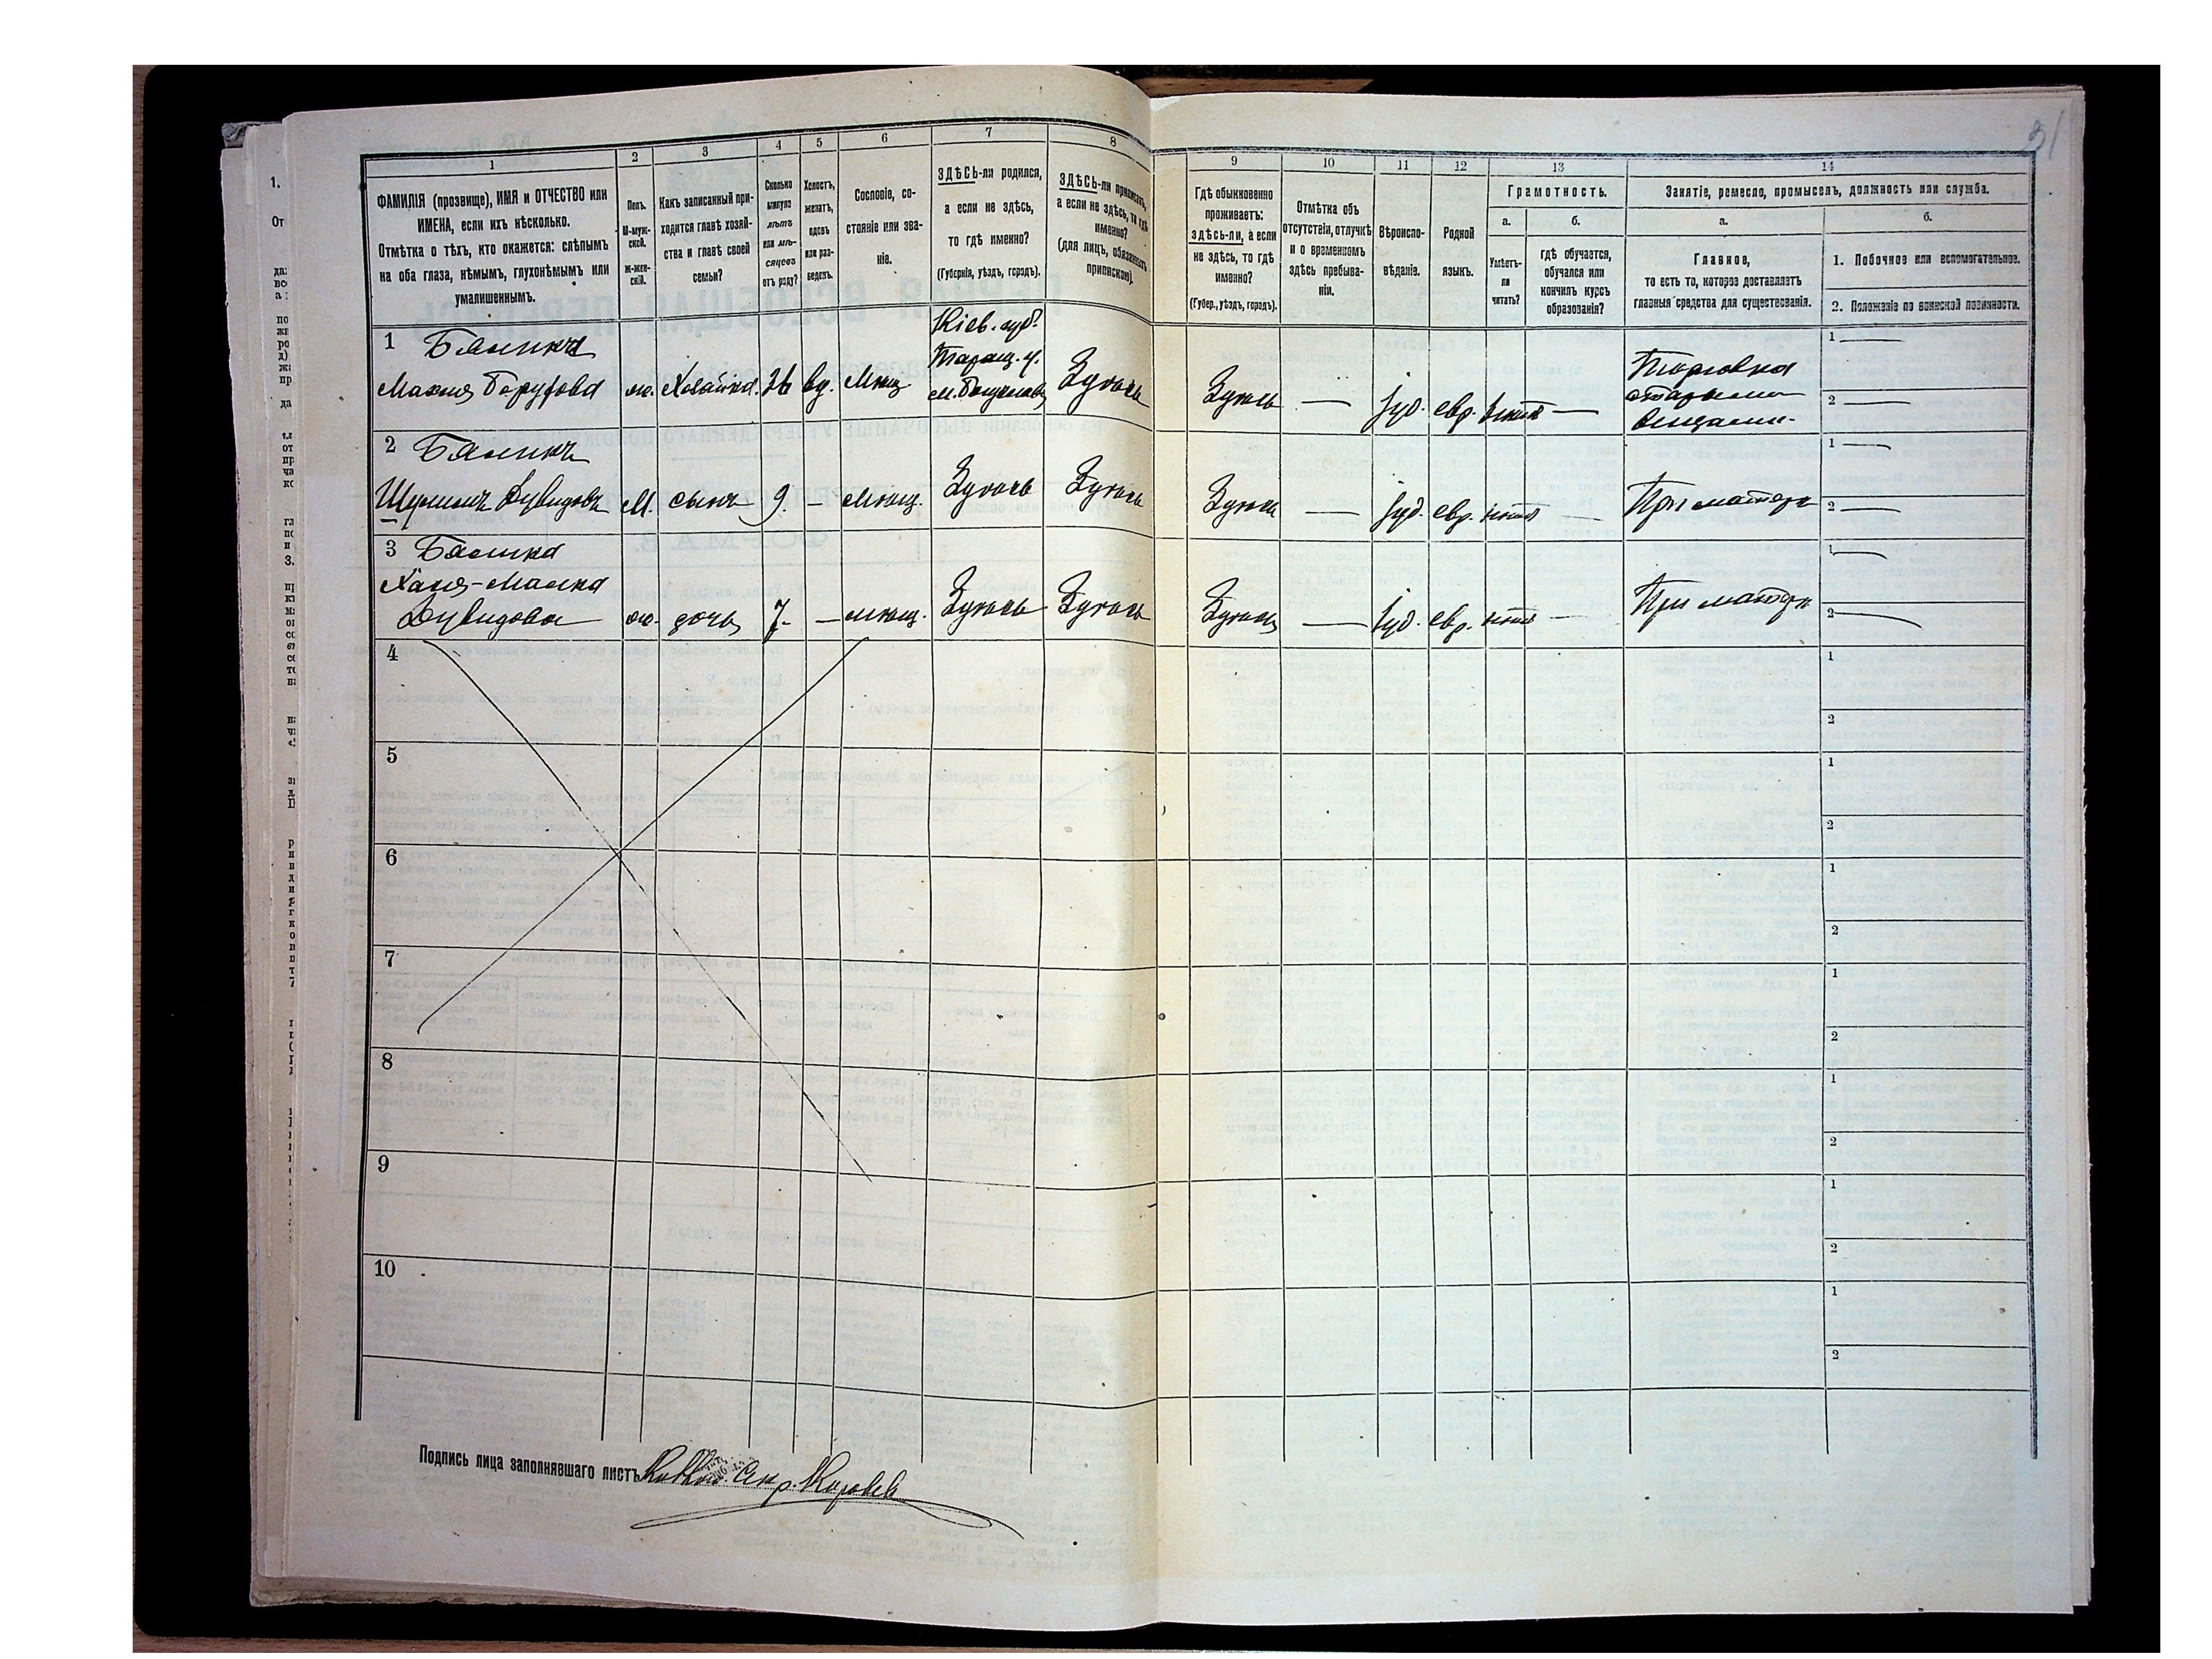 31
1
2
3
4
5
6
7
8
ФАМИЛІЯ (прозвище), ИМЯ и ОТЧЕСТВО или
ИМЕНА, если ихъ нѣсколько.
Отмѣтка о тѣхъ, кто окажется: слѣпымъ
на оба глаза, нѣмымъ, глухонѣмымъ или
умалишеннымъ.
Полъ.
М-муж-
ской.
Ж-жен-
скій.
Какъ записанный при-
ходится главѣ хозяй-
ства и главѣ своей
семьи?
Сколько
минуло
лѣтъ
или мѣ-
сяцевъ
отъ роду?
Холостъ,
женатъ,
вдовъ
или раз-
веденъ.
Сословіе, со-
стояніе или зва-
ніе.
ЗДѢСЬ-ли родился,
а если не здѣсь,
то гдѣ именно?
(Губернія, уѣздъ, городъ).
ЗДѢСЬ-ли приписанъ,
а если не здѣсь, то гдѣ
именно?
(для лицъ, обязанныхъ
припиской).
9
10
11
12
13
14
Гдѣ обыкновенно
проживаетъ:
здѣсь-ли, а если
не здѣсь, то гдѣ
именно?
(Губер., уѣздъ, городъ).
Отмѣтка объ
отсутствіи, отлучкѣ
и о временномъ
здѣсь пребыва-
ніи.
Вѣроиспо-
вѣданіе.
Родной
языкъ.
Грамотность.
а.
б.
Умѣетъ-
ли
читать?
гдѣ обучается,
обучался или
кончилъ курсъ
образованія?
Занятіе, ремесло, промыселъ, должность или служба.
а.
б.
Главное,
то есть то, которое доставляетъ
главныя средства для существованія.
1. Побочное или вспомогательное.
2. Положеніе по воинской повинности.
1 Бялика
ж. Хозяйка. вд. Мѣщ.
Кіев. губ.
Таращ. у.
Здѣсь
Здѣсь — Іуд. евр. —
Торговка
старыми
вещами.
1 —
2 —
2 Бяликъ
М. сынъ 9. — мѣщ. Здѣсь Здѣсь
Здѣсь — Іуд. евр. нѣтъ —
При матери
1 —
2 —
3 Бялика
Хая-Малка
Дувидова ж. дочь 7. — мѣщ. Здѣсь Здѣсь
Здѣсь — Іуд. евр. нѣтъ —
При матери
1 —
2 —
4
1
2
5
1
2
6
1
2
7
1
2
8
1
2
9
1
2
10
1
2
Подпись лица заполнявшаго листъ